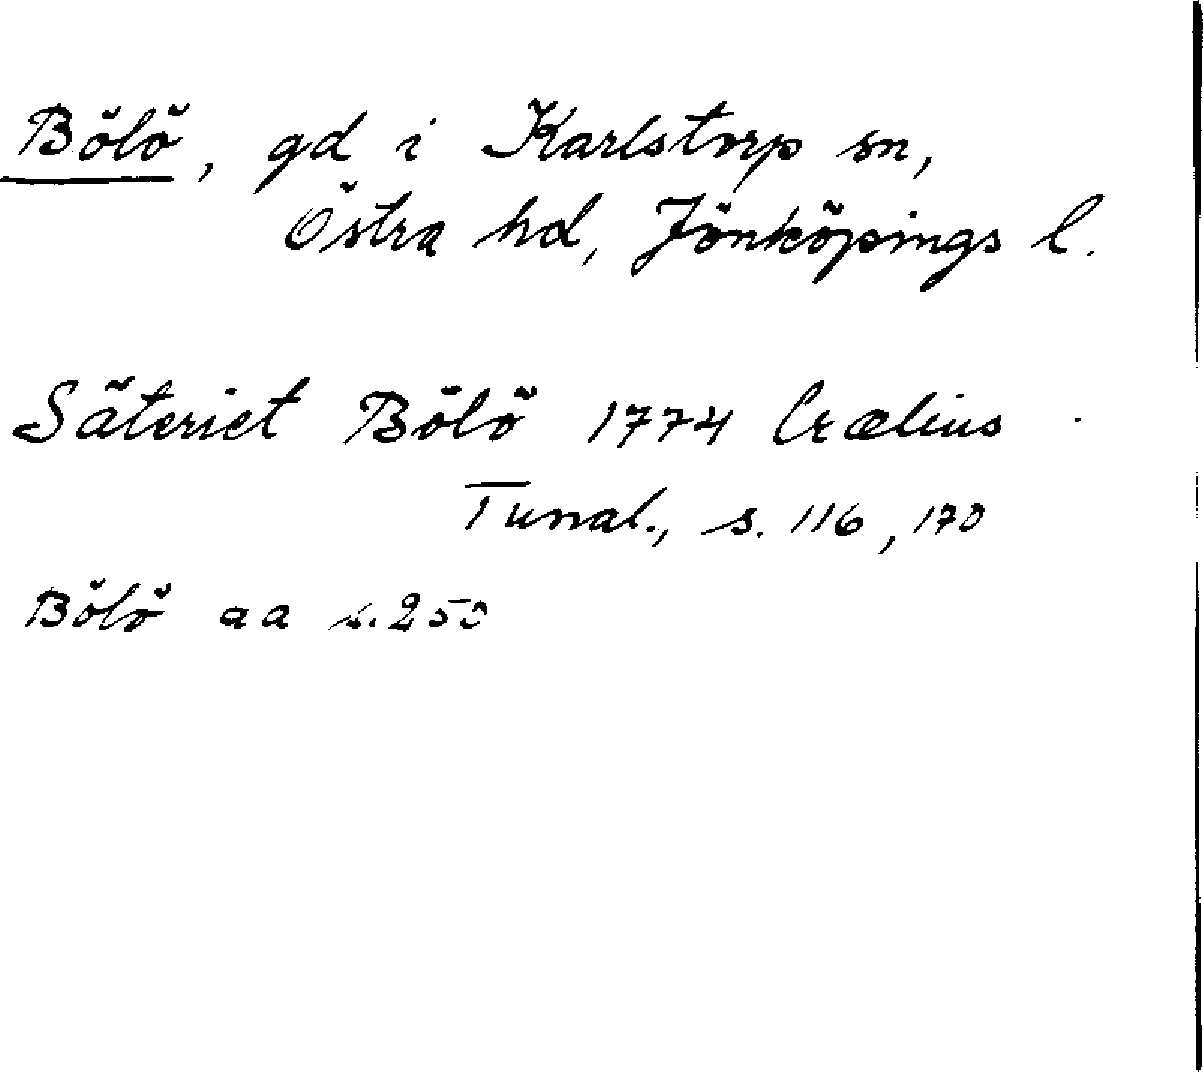 Bölö, gd i Karlstorp sn,
Östra hd, Jönköpings l.
Säteriet Bölö 1774 Crælius
Tunal., s. 116, 170
Bölö aa s. 250